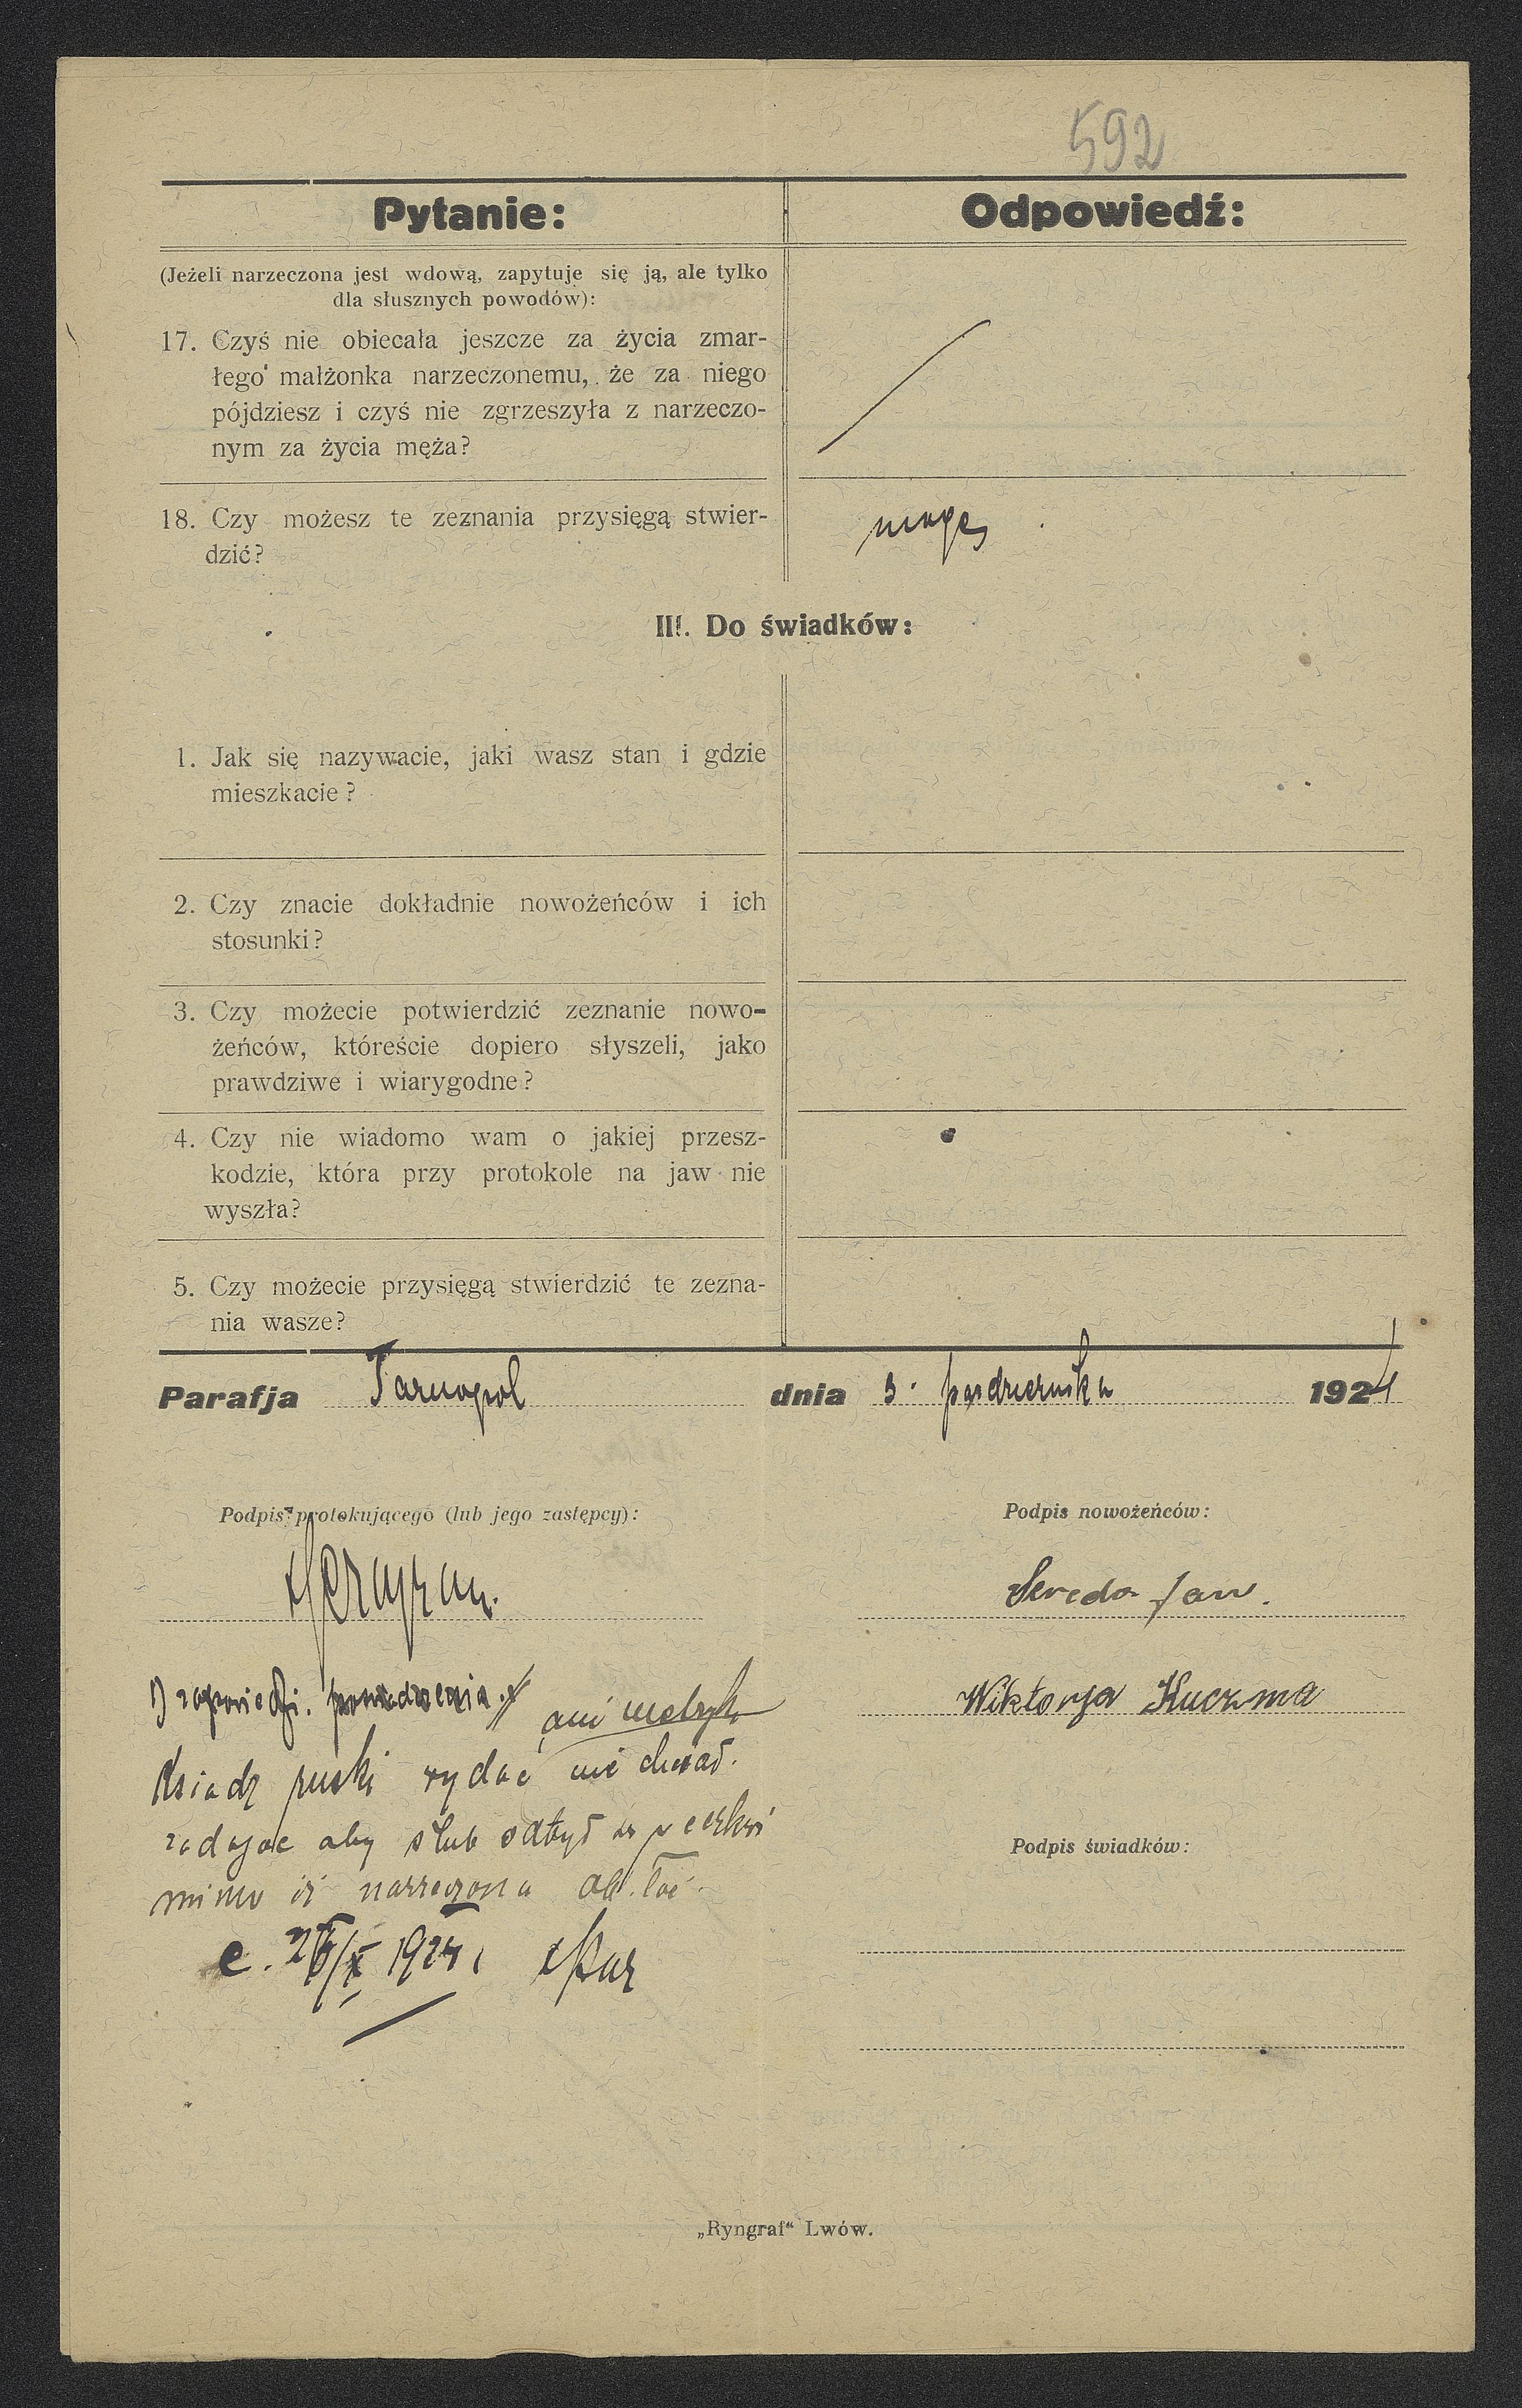 592
Pytanie:
Odpowiedź:
(Jeżeli narzeczona jest wdową, zapytuje się ją, ale tylko
dla słusznych powodów):
17. Czyś nie obiecała jeszcze za życia zmar-
łego małżonka narzeczonemu, że za niego
pójdziesz i czyś nie zgrzeszyła z narzeczo-
nym za życia męża?
18. Czy możesz te zeznania przysięgą stwier-
dzić?
mogę
III. Do świadków:
1. Jak się nazywacie, jaki wasz stan i gdzie
mieszkacie?
2. Czy znacie dokładnie nowożeńców i ich
stosunki?
3. Czy możecie potwierdzić zeznanie nowo-
żeńców, któreście dopiero słyszeli, jako
prawdziwe i wiarygodne?
4. Czy nie wiadomo wam o jakiej przesz-
kodzie, która przy protokole na jaw nie
wyszła?
5. Czy możecie przysięgą stwierdzić te zezna-
nia wasze?
Parafja Tarnopol dnia 3. października 1924
Podpis protokującego (lub jego zastępcy):
Podpis nowożeńców:
Sereda Jan.
1) zapowiedzi. ani metryki
Wiktorya Kuczma
Ksiądz ruski wydać nie chciał.
żądając aby ślub odbył w cerkwi
Podpis świadków:
mimo iż narzeczona ob. łać.
1924
„Ryngraf“ Lwów.